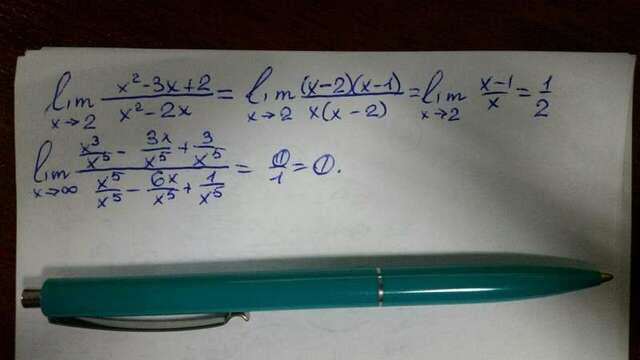 lim x→2 (x²-3x+2)/(x²-2x) = lim x→2 ((x-2)(x-1))/(x(x-2)) = lim x→2 (x-1)/x = 1/2
lim x→∞ (x³/x⁵ - 3x/x⁵ + 3/x⁵)/(x⁵/x⁵ - 6x/x⁵ + 1/x⁵) = 0/1 = 0.